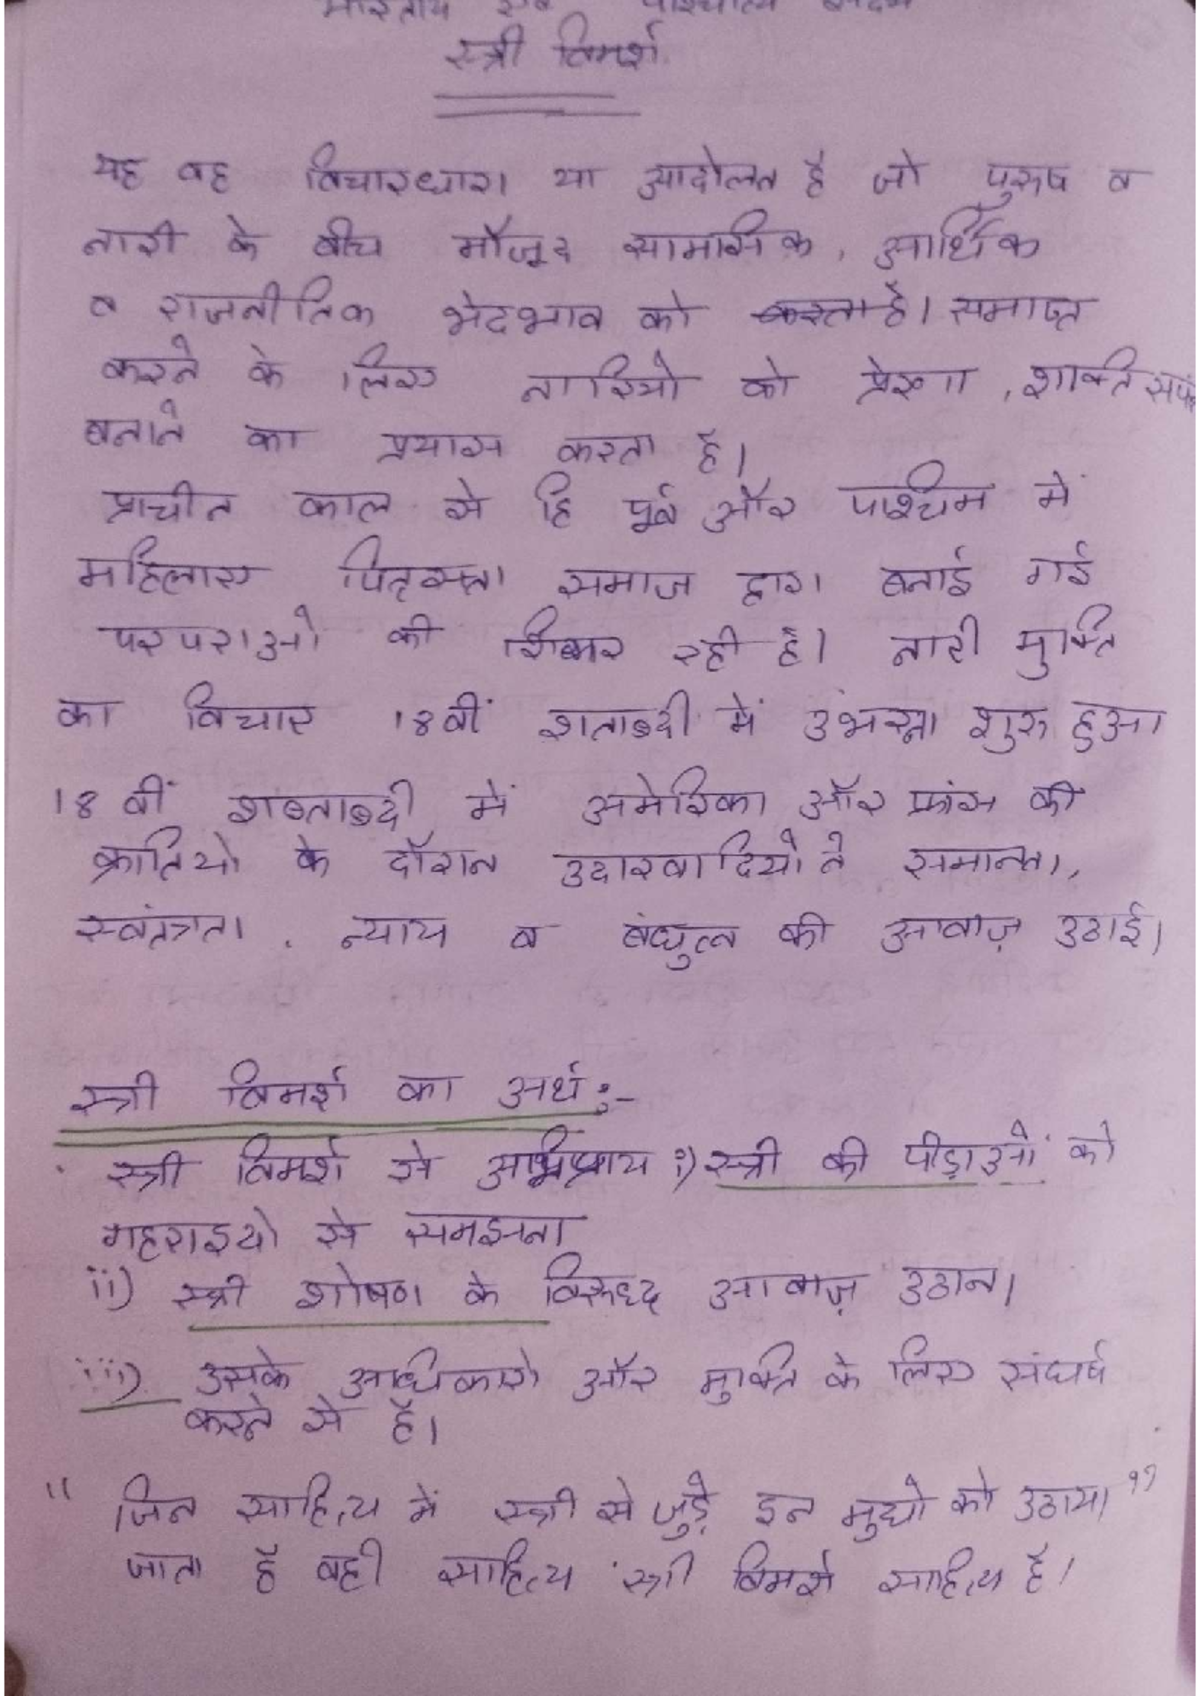 भारतीय एवं पाश्चात्य संदर्भ
स्त्री विमर्श
यह वह विचारधारा या आदोलन है जो पुरुष व
नारी के बीच मौजूद सामाजिक, आर्थिक
व राजनीतिक भेदभाव को करता है। समाप्त
करने के लिए नारियो को प्रेरणा, शक्ति संपन्न
बनाने का प्रयास करता है।
प्राचीन काल से हि पूर्व और पाश्चिम में
महिलाए पितृसत्ता समाज द्वारा बनाई गई
परपराओ की शिकार रही है। नारी मुक्ति
का विचार 18वीं शताब्दी में उभरना शुरू हुआ
18 वीं शब्ताब्दी में अमेरिका और फ्रांस की
क्रातियो के दौरान उदारवादियो ने समानता,
स्वंतत्रता, न्याय व बंधुत्व की आवाज़ उठाई।
स्त्री विमर्श का अर्थ :-
स्त्री विमर्श से अभिप्राय i) स्त्री की पीड़ाओं को
गहराइयो से समझना
ii) स्त्री शोषण के विरूध्द आवाज़ उठाना
iii) उसके अधिकारो और मुक्ति के लिए संघर्ष
करने से है।
" जिन साहित्य में स्त्री से जुड़े इन मुद्यो को उठाया "
जाता है वही साहित्य स्त्री विमर्श साहित्य है।